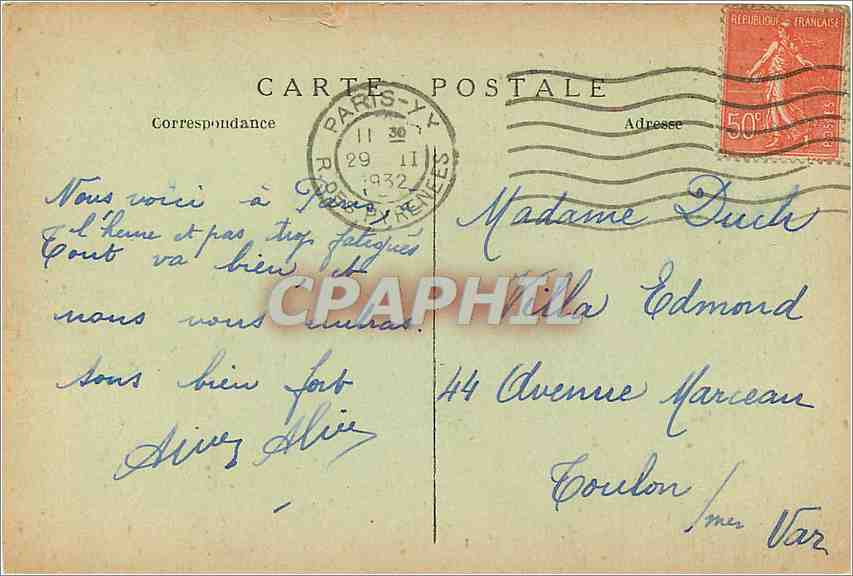 CARTE POSTALE
Correspondance
Adresse
RÉPUBLIQUE FRANÇAISE
50c
POSTES
PARIS-XX
11 30
29 II
1932
R. DES PYRENEES
Nous voici à Paris, à
l'heure et pas trop fatigués
Tout va bien et
nous vous embras.
sons bien fort
CPAPHIL
Madame Duch
Villa Edmond
44 Avenue Marceau
Toulon /mer
Var